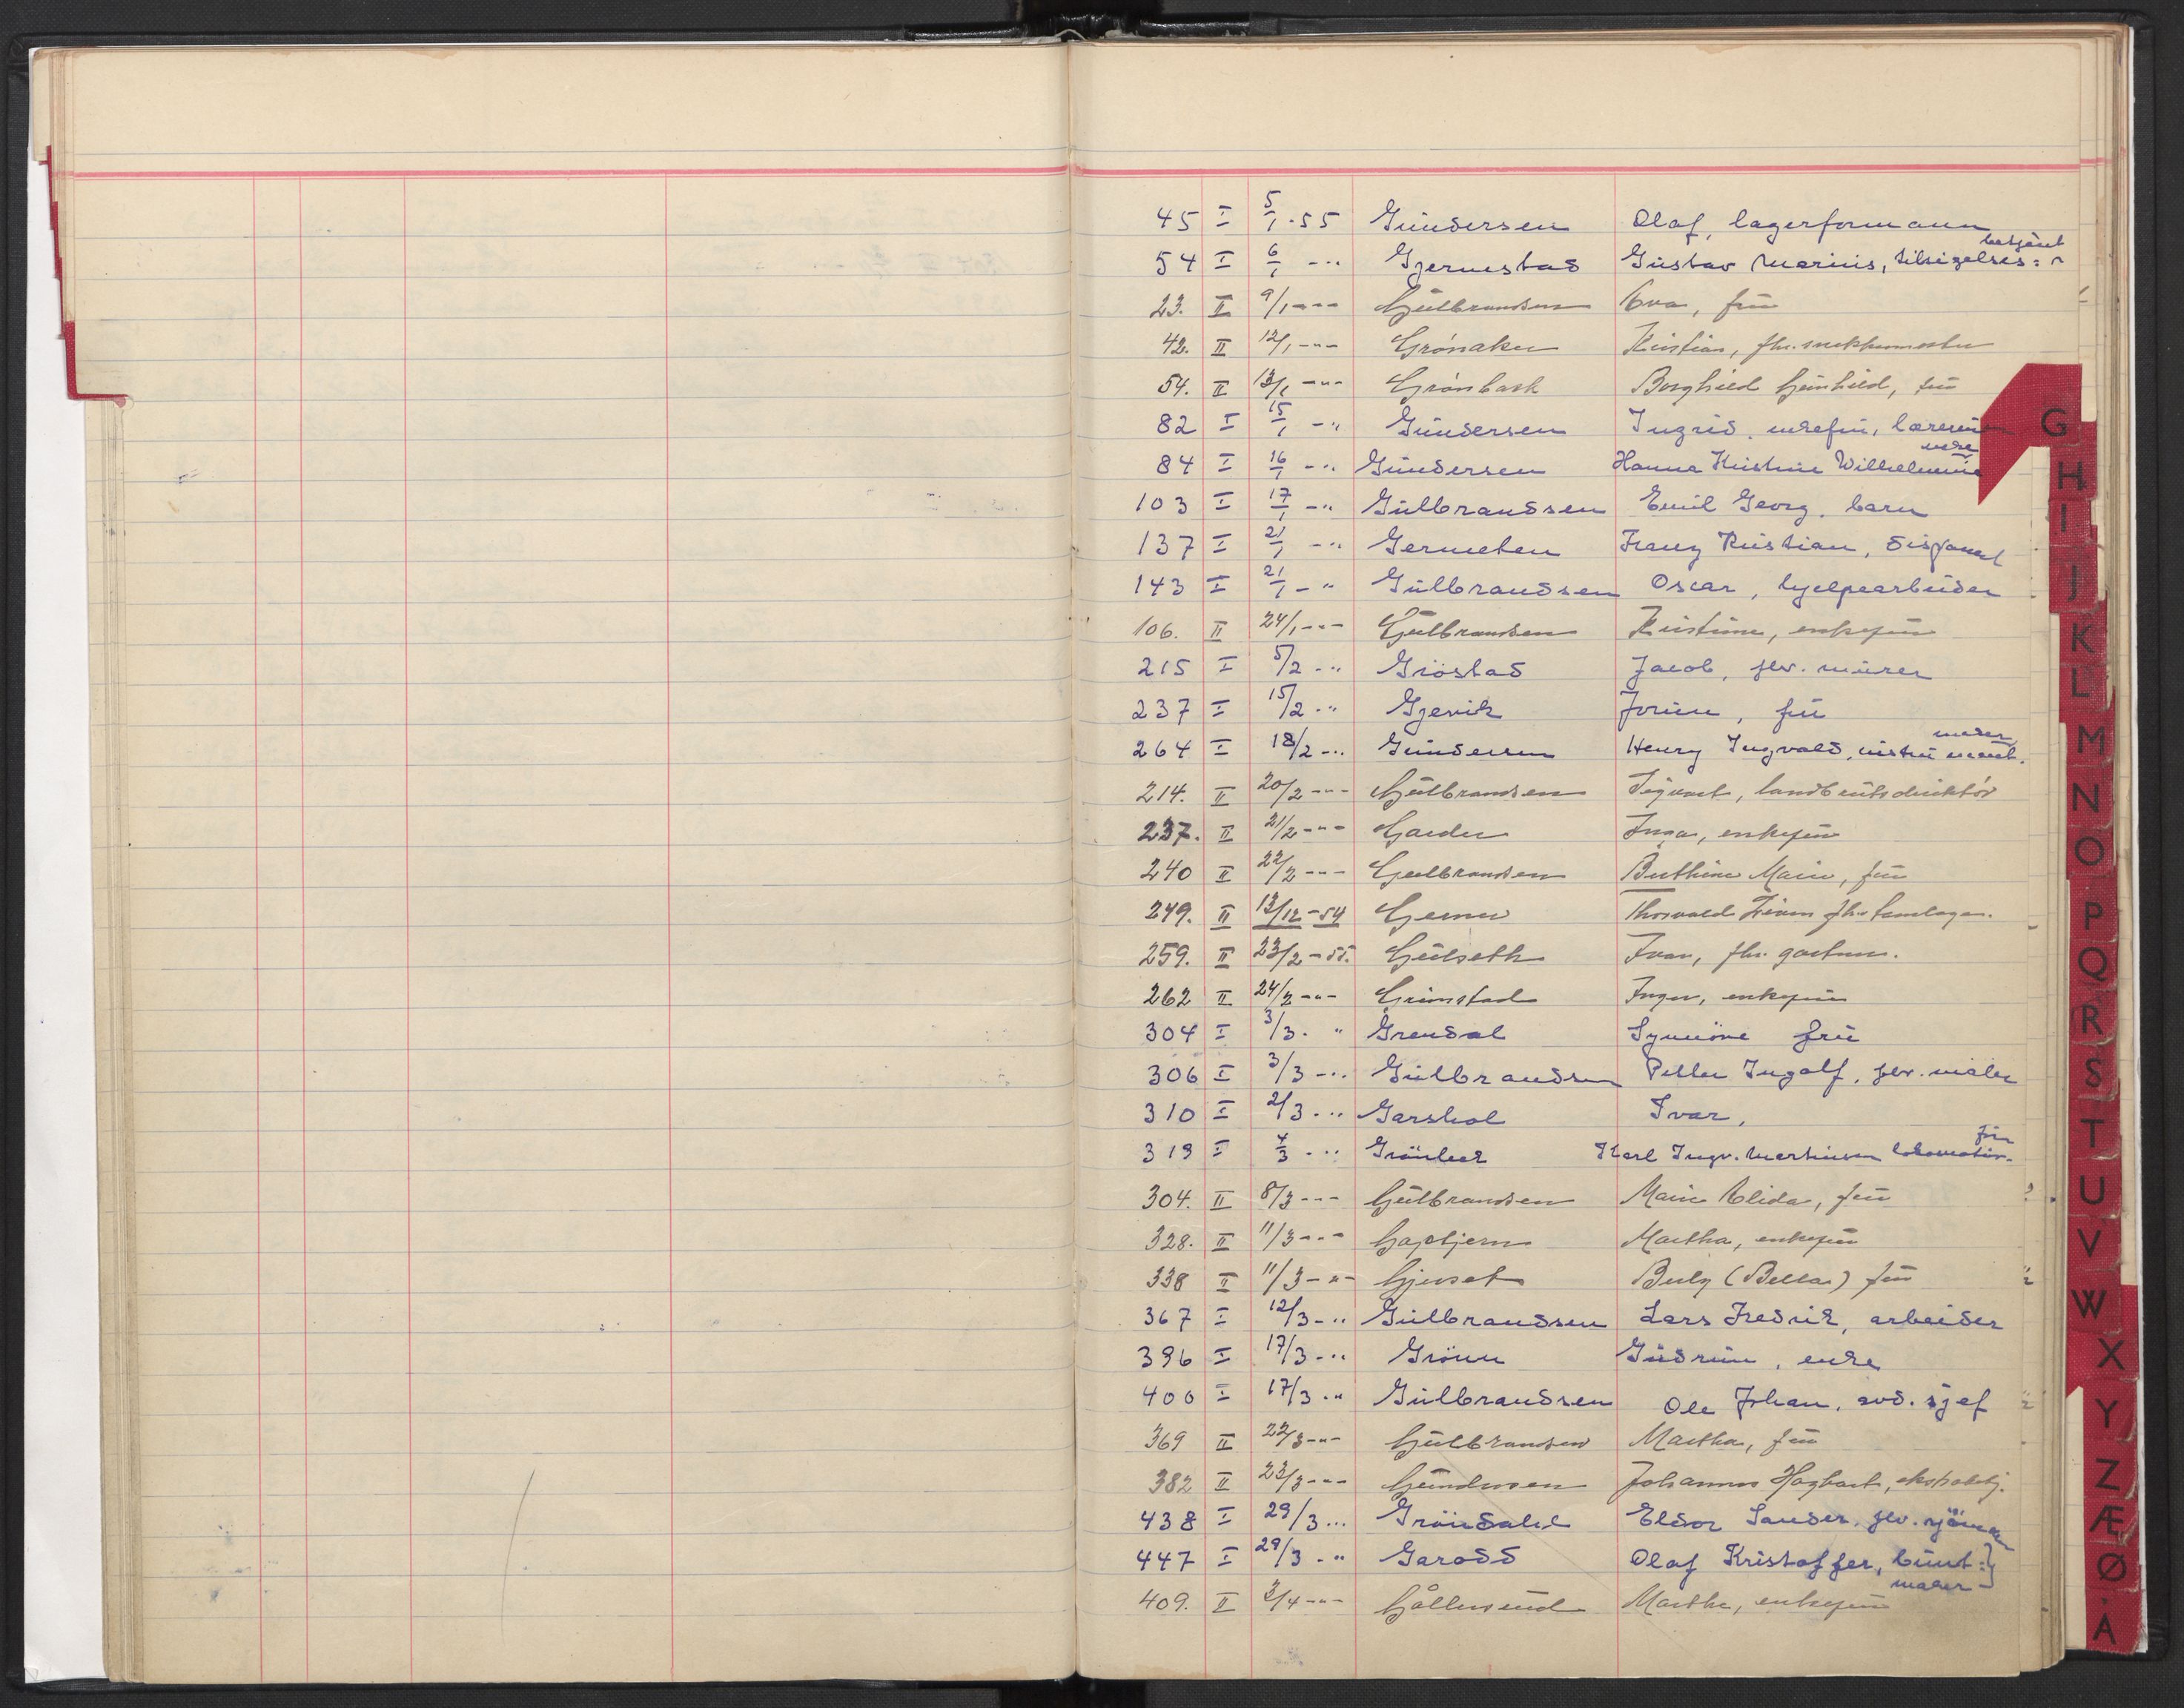 45 I 5/1-55 Gundersen Olaf, lagerformann
54 I 6/1 -"- Gjermestad Gustav Marius, tilsigelses= betjent
23. II 9/1 -"- Gulbrandsen Eva, fru
42. II 12/1 -"- Grönaker Kristian, fhv.
54. II 13/1 -"- Grönbæk Borghild Gunhild, fru
82 I 15/1 -" Gundersen Ingrid, enkefru, lærerinne
84 I 16/1 -" Gundersen Hanna Kristine Wilhelmine enke
103 I 17/1 -" Gulbrandsen Emil Georg, barn
137 I 21/1 -" Germeten Franz Kristian, disponent
143 I 21/1 -" Gulbrandsen Oscar, hjelpearbeider
106. II 24/1 -"- Gulbrandsen Kristine, enkefru
215 I 5/2 -" Gröstad Jacob, fhv. murer
237 I 15/2 -" Gjervik Jorun, fru
264 I 18/2 -" Gundersen Henry Ingvald, instrument. maker
214. II 20/2 -"- Gulbrandsen Sigurd, landbruksdirektör
237. II 21/2 -"- Garder Inga, enkefru
240 II 22/2 -"- Gulbrandsen Berthine Marie, fru
249. II 13/12-54 Thorvald fhv.
259. II 23/2-55. Gulseth Ivar, fhv. gartner.
262 II 24/2 -"- Grimstad Inger, enkefru
304 I 3/3 -" Grendal Synnöve fru
306 I 3/3 -" Gulbrandsen Petter Ingolf, fhv. maler
310 I 2/3 -" Garshol Ivar,
319 I 4/3 -" Grönbeck Karl Ingv. Martinsen lokomotiv- för
304. II 8/3 -"- Gulbrandsen Marie Elida, fru
328. II 11/3 -"- Gapstjern Martha, enkefru
338 II 11/3 -"- Gjerset Berly (Bella) fru
367 I 12/3 -" Gulbrandsen Lars Fredrik, arbeider
396 I 17/3 -" Grönn Gudrun, enke
400 I 17/3 -" Gulbrandsen Ole Johan, avd. sjef
369 II 22/3 -"- Gulbrandsen Martha, fru
382 II 23/3 -"- Gundersen Johannes Hagbart,
438 I 29/3 -" Gröndahl Eldor Sander, fhv. sjömann
447 I 29/3 -" Garodd Olaf Kristoffer, bunt= maker
409. II 2/4 -"- Gållersrud Marthe, enkefru
G
H
I
J
K
L
M
N
O
P
Q
R
S
T
U
V
W
X
Y
Z
Æ
Ø
Å